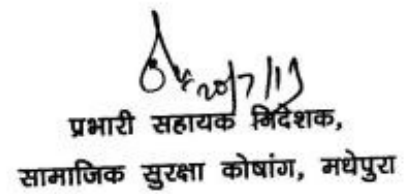 20/7/19
प्रभारी सहायक निदेशक,
सामाजिक सुरक्षा कोषांग, मधेपुरा